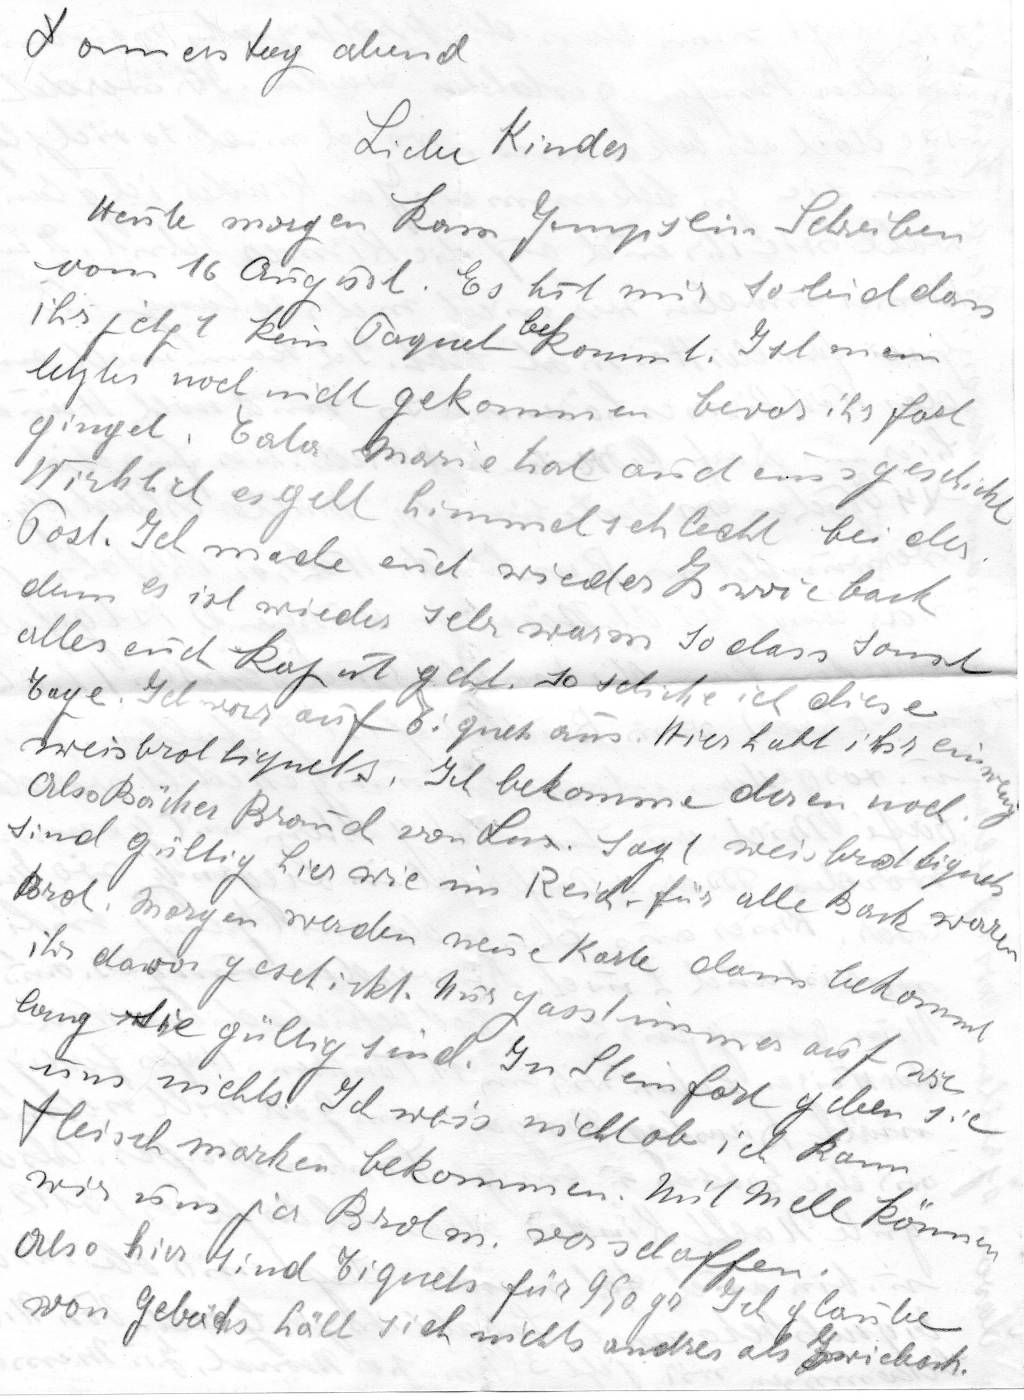 Donnerstag abend
Liebe Kinder
Heute morgen kam Schreiben
vom 16 August. Es tut mir so leid dass
ihr jetzt kein Paquet bekommt. Ist mein
letztes noch nicht gekommen bevor ihr fort
ginget. Tata Marie hat auch eins geschickt
Wirklich es geht himmelschlecht bei der
Post. Ich mache euch wieder Zwieback
denn es ist wieder sehr warm so dass sonst
alles euch kaput geht. so schicke ich diese
Tage. Ich war auf Tiquets aus. Hier habt ihr ein wenig
weisbrottiquets. Ich bekomme deren noch.
Also Bäcker Braud von Lux. sagt weisbrottiquets
sind gültig hier wie im Reich für alle Backwaren
Brot. Morgen werden neue Karte dann bekommt
ihr davon geschickt. Nur passt immer auf wie
lang sie gültig sind. In Steinfort geben sie
uns nichts. Ich weis nicht ob ich kann
Fleischmarken bekommen. Mit Mehl können
wir uns ja Brotm. verschaffen.
Also hier sind Tiquets für 950 gr Ich glaube
von Gebäcks hält sich nichts andres als Zwieback.